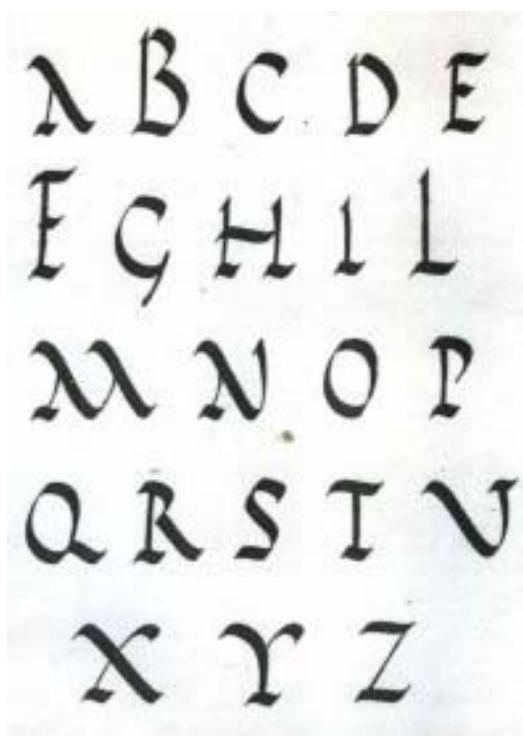 A B C D E
F G H I L
M N O P
Q R S T V
X Y Z